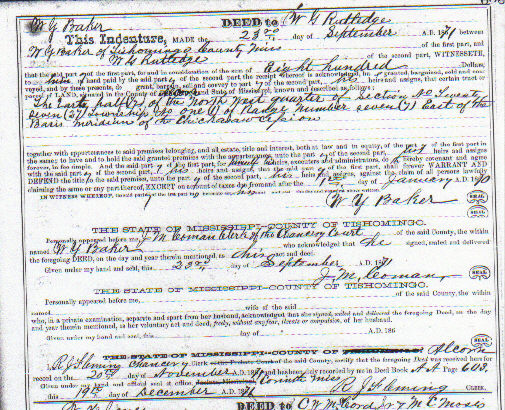 W Y Baker DEED to W G Rutledge
This Indenture, MADE the 23rd day of September A.D. 1871 between
W Y Baker of Tishomingo County Miss of the first part, and
W G Rutledge of the second part, WITNESSETH,
that the said part of the first part, for and in consideration of the sum of Eight hundred Dollars,
in hand paid by the said party of the second part the receipt whereof is acknowledged, has granted, bargained, sold and con-
veyed, and by these presents, do grant, bargain, sell and convey to part of the second part, his heirs and assigns, that certain tract or
parcel of LAND, situated in the County of and State of Mississippi, known and described as follows:
The East half (½) of the North West quarter of Section No Twenty
Seven (27) Township No one (1) of Range number Seven (7) East of the
Basis meridian of the Chickasaw Cession
together with appurtenances to said premises belonging, and all estate, title and interest, both at law and in equity, of the part of the first part in
the same; to have and to hold the said granted premises with the appurtenances, unto the part of the second part, his heirs and assigns
forever, in fee simple. And the said part of the first part, for heirs, executors and administrators, do hereby covenant and agree
with the said part of the second part, his heirs and assigns, that the said part of the first part, shall forever WARRANT AND
DEFEND the title to the said premises, unto the part of the second part, heirs and assigns, against the claim of all persons lawfully
claiming the same or any part thereof, EXCEPT on account of taxes due from and after the 1st day of January A.D. 18
IN WITNESS WHEREOF,
W Y Baker SEAL
THE STATE OF MISSISSIPPI-COUNTY OF TISHOMINGO.
Personally appeared before me, J. M. Coman Clerk of the Chancery Court of the said County, the within
named W Y Baker who acknowledged that he signed, sealed and delivered
the foregoing DEED, on the day and year therein mentioned, as his act and deed.
Given under my hand and seal, this 23rd day of September A.D. 1871
J. M. Coman, SEAL
THE STATE OF MISSISSIPPI-COUNTY OF TISHOMINGO.
Personally appeared before me, of the said County, the within
named wife of the said
who, in a private examination, separate and apart from her husband, acknowledged that she signed, sealed and delivered the foregoing Deed, on the day
and year therein mentioned, as her voluntary act and deed, freely, without any fear, threats or compulsion, of her husband.
Given under my hand and seal, this day of A.D. 186 SEAL
THE STATE OF MISSISSIPPI-COUNTY OF TISHOMINGO, Alcorn
R J Fleming Chancery Clerk of the said County, certify that the foregoing Deed was received here for
record on the 20th day of November A.D. 1871 and has been duly recorded by me in Deed Book A A Page 603.
Given under my hand and official seal at office, Corinth Miss
this 19th day of December A.D. 1871 R J Fleming CLERK.
DEED to